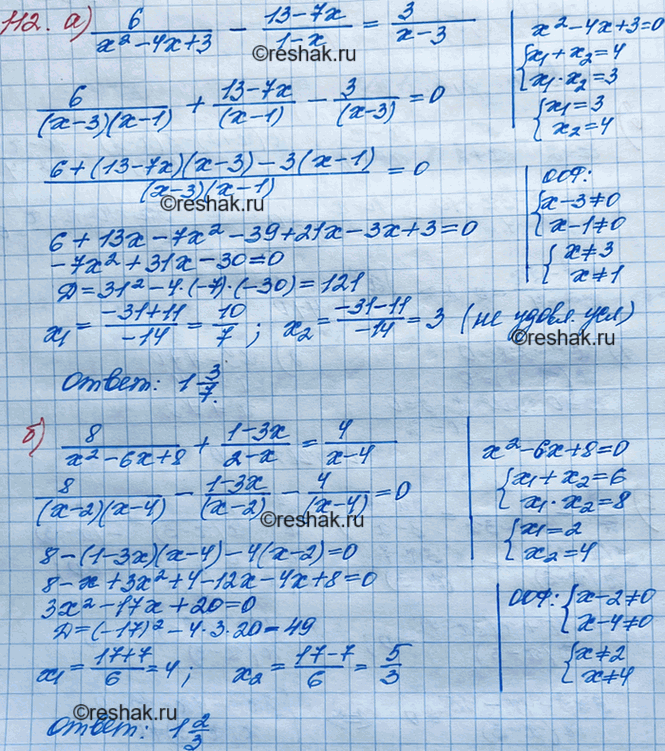 112. а) 6/(x²-4x+3) - (13-7x)/(1-x) = 3/(x-3)
x²-4x+3=0
{x₁+x₂=4
x₁·x₂=3
{x₁=3
x₂=4
©reshak.ru
6/((x-3)(x-1)) + (13-7x)/(x-1) - 3/(x-3) = 0
(6+(13-7x)(x-3)-3(x-1))/((x-3)(x-1)) = 0
©reshak.ru
ООФ:
{x-3≠0
x-1≠0
{x≠3
x≠1
6+13x-7x²-39+21x-3x+3=0
-7x²+31x-30=0
Д=31²-4·(-7)·(-30)=121
x₁=(-31+11)/(-14)=10/7; x₂=(-31-11)/(-14)=3 (не удовл. усл)
©reshak.ru
Ответ: 1 3/7.
б) 8/(x²-6x+8) + (1-3x)/(2-x) = 4/(x-4)
x²-6x+8=0
{x₁+x₂=6
x₁·x₂=8
{x₁=2
x₂=4
8/((x-2)(x-4)) - (1-3x)/(x-2) - 4/(x-4) = 0
©reshak.ru
8-(1-3x)(x-4)-4(x-2)=0
8-x+3x²+4-12x-4x+8=0
3x²-17x+20=0
Д=(-17)²-4·3·20=49
ООФ: {x-2≠0
x-4≠0
{x≠2
x≠4
x₁=(17+7)/6=4; x₂=(17-7)/6=5/3
Ответ: 1 2/3
©reshak.ru